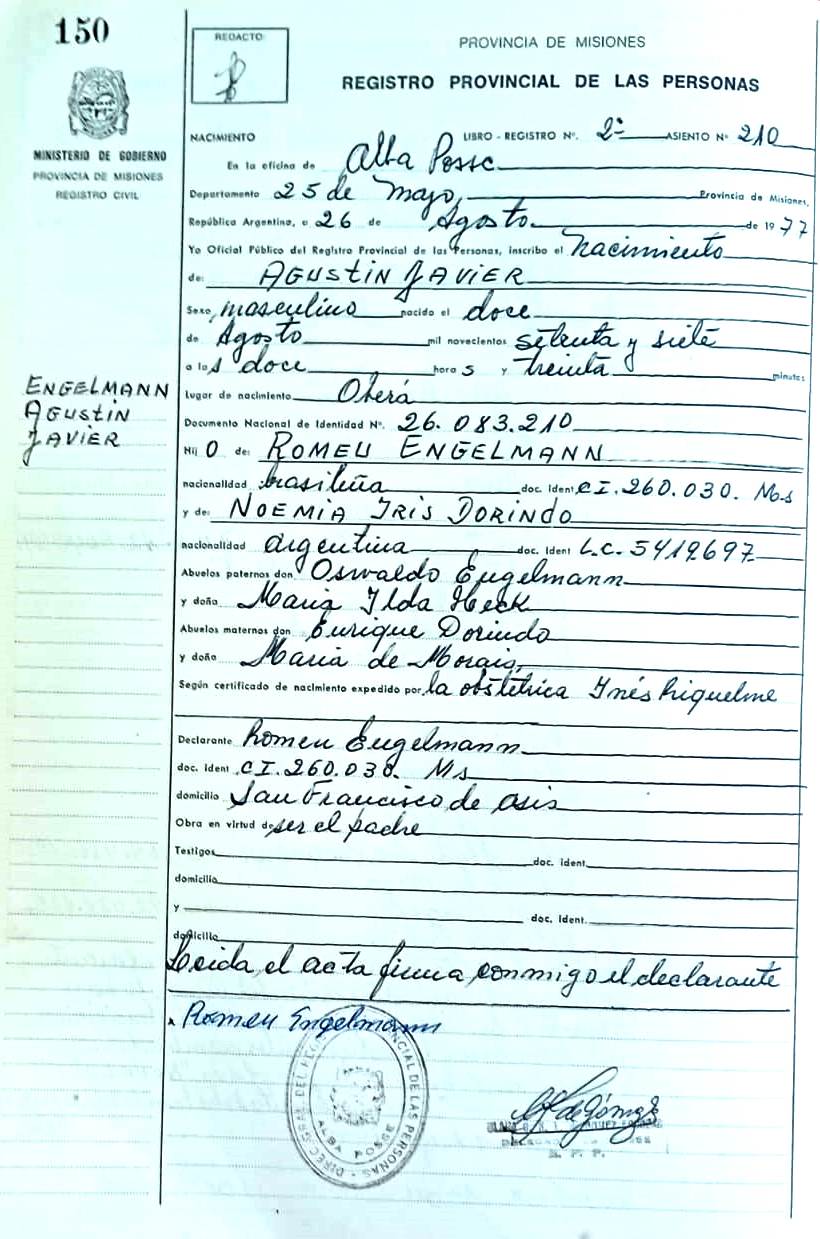 150
REDACTO
PROVINCIA DE MISIONES
REGISTRO PROVINCIAL DE LAS PERSONAS
MINISTERIO DE GOBIERNO
PROVINCIA DE MISIONES
REGISTRO CIVIL
NACIMIENTO LIBRO - REGISTRO Nº. 2º ASIENTO Nº 210
En la oficina de Alba Posse
Departamento 25 de Mayo, Provincia de Misiones,
República Argentina, a 26 de Agosto de 1977
Yo Oficial Público del Registro Provincial de las Personas, inscribo el Nacimiento
de: AGUSTIN JAVIER
Sexo masculino nacido el doce
de Agosto mil novecientos setenta y siete
a las doce horas y treinta minutos
ENGELMANN
AGUSTIN
JAVIER
Lugar de nacimiento Oberá
Documento Nacional de Identidad Nº. 26.083.210
Hijo de: ROMEU ENGELMANN
nacionalidad brasileña doc. Ident C.I. 260.030. Mos
y de: NOEMIA IRIS DORINDO
nacionalidad argentina doc. Ident L.C. 5419697
Abuelos paternos don Oswaldo Engelmann
y doña Maria Ilda Heck
Abuelos maternos don Enrique Dorindo
y doña Maria de Morais,
Según certificado de nacimiento expedido por la obstétrica Inés Riquelme
Declarante Romeu Engelmann
doc. ident C.I. 260.030. Ms
domicilio San Francisco de asis
Obra en virtud de ser el padre
Testigos doc. ident.
domicilio
y doc. Ident.
domicilio
Leida el acta firma conmigo el declarante
Romeu Engelmann
DIREC. GRAL. DEL REG. PROVINCIAL DE LAS PERSONAS
ALBA POSSE
de Gómez
M. P. P.